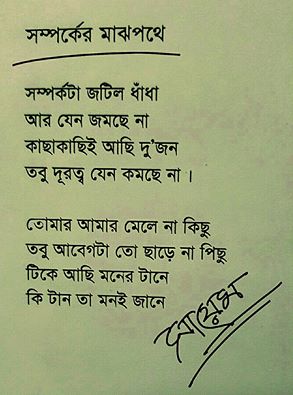 সম্পর্কের মাঝপথে
সম্পর্কটা জটিল ধাঁধা
আর যেন জমছে না
কাছাকাছিই আছি দু'জন
তবু দূরত্ব যেন কমছে না।
তোমার আমার মেলে না কিছু
তবু আবেগটা তো ছাড়ে না পিছু
টিকে আছি মনের টানে
কি টান তা মনই জানে